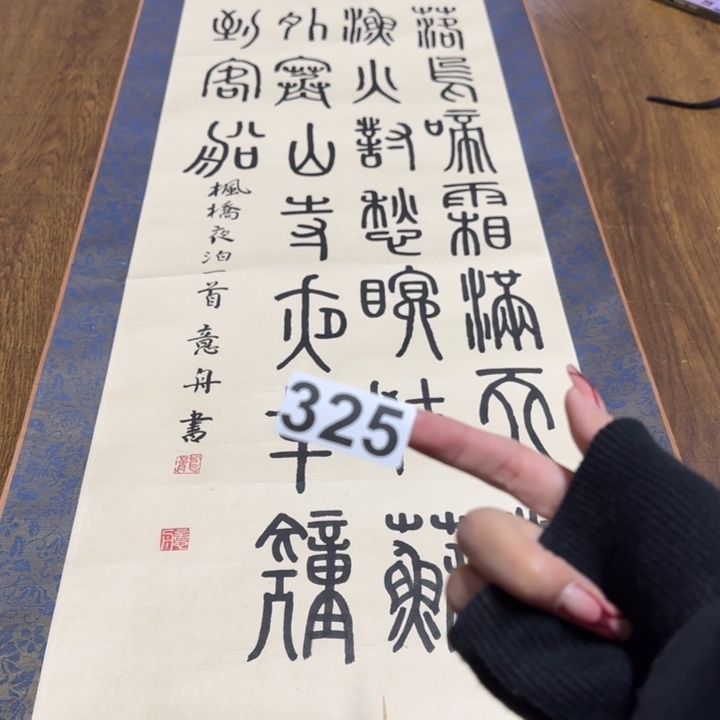 落烏啼霜滿天
漁火對愁眠蘇
外寒山寺夜鐘
到客船
楓橋夜泊一首 意舟書
325